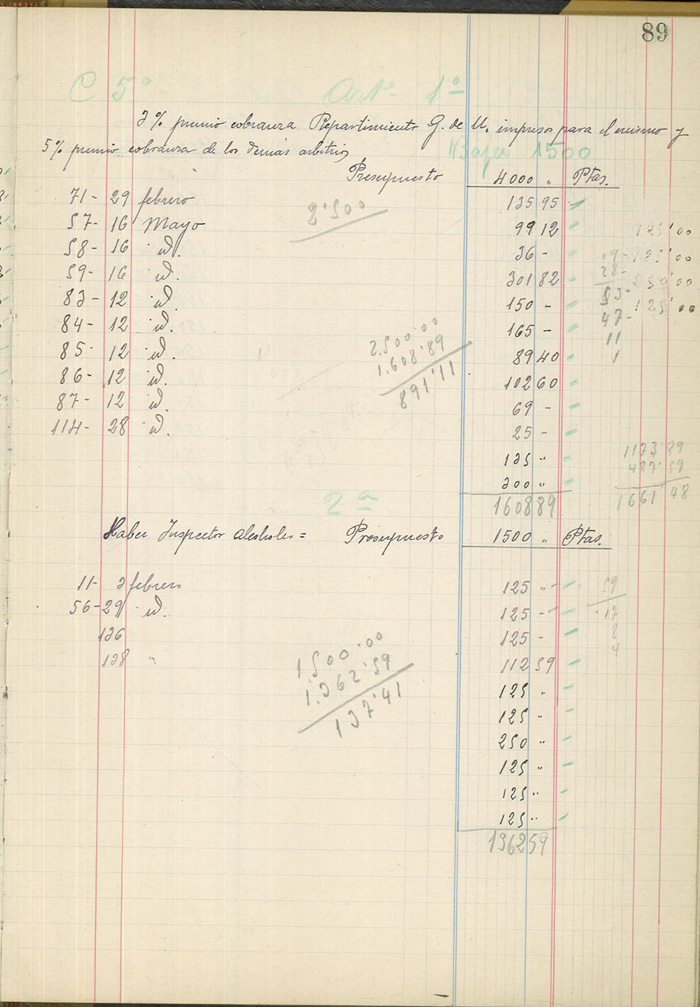 89
C 5º Artº 1º
2% premio cobranza Repartimiento G. de U. impreso para el mismo y
5% premio cobranza de los demás arbitrios Baja 1500
Presupuesto 4000 „ Ptas.
71- 29 febrero 135 95
2'500
57- 16 Mayo 99 12
125'00
58- 16 id. 36 -
19- 125'00
59- 16 id. 301 82
28- 250'00
83- 12 id. 150 -
53- 125'00
84- 12 id. 165 -
47-
85- 12 id. 89 40
11
86- 12 id. 102 60
1
87- 12 id. 69 -
114- 28 id. 25 -
2.500'00
1.608'89
891'11
125 „
200 „
1608 89
1173'89
487'59
1661'48
2ª
Haber Inspector Alcoholes = Presupuesto 1500 „ Ptas.
11- 2 febrero 125 „
59
56- 29 id. 125 -
17
136 125 -
8
138 „ 112 59
4
125 „
125 „
250 „
125 „
125 „
125 „
1.500'00
1.362'59
137'41
1362 59